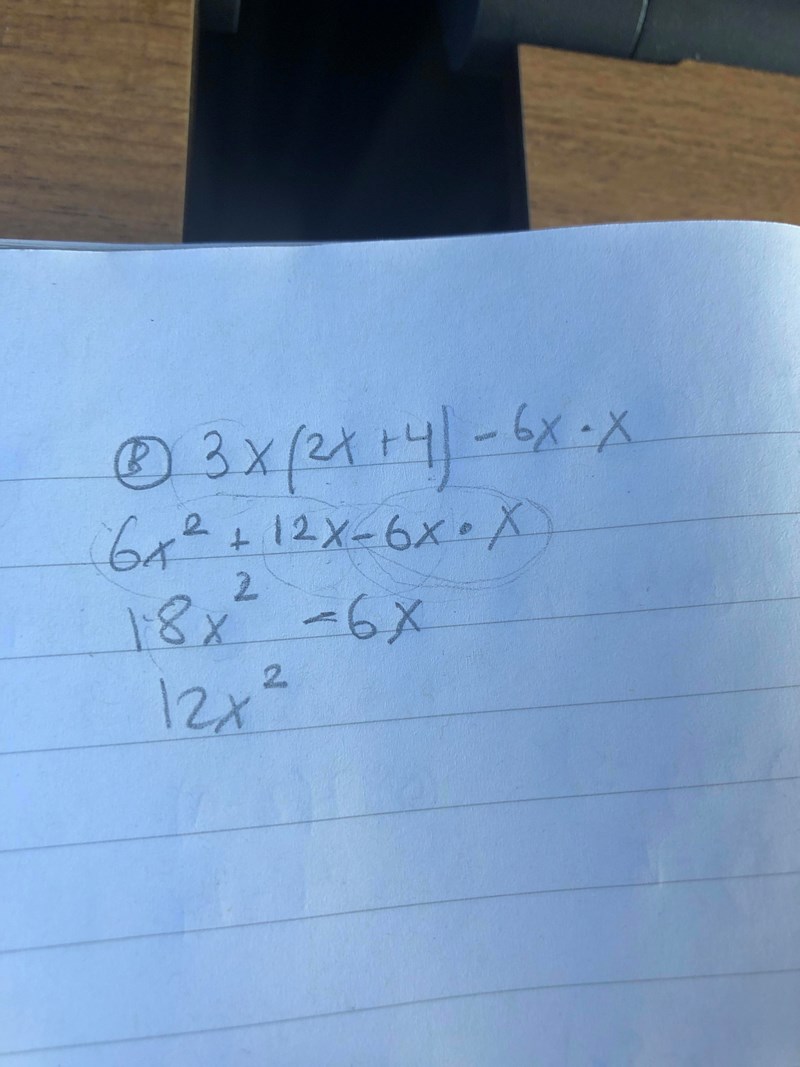 Ⓑ 3x(2x+4) - 6x·x
6x² + 12x - 6x·x
18x² - 6x
12x²